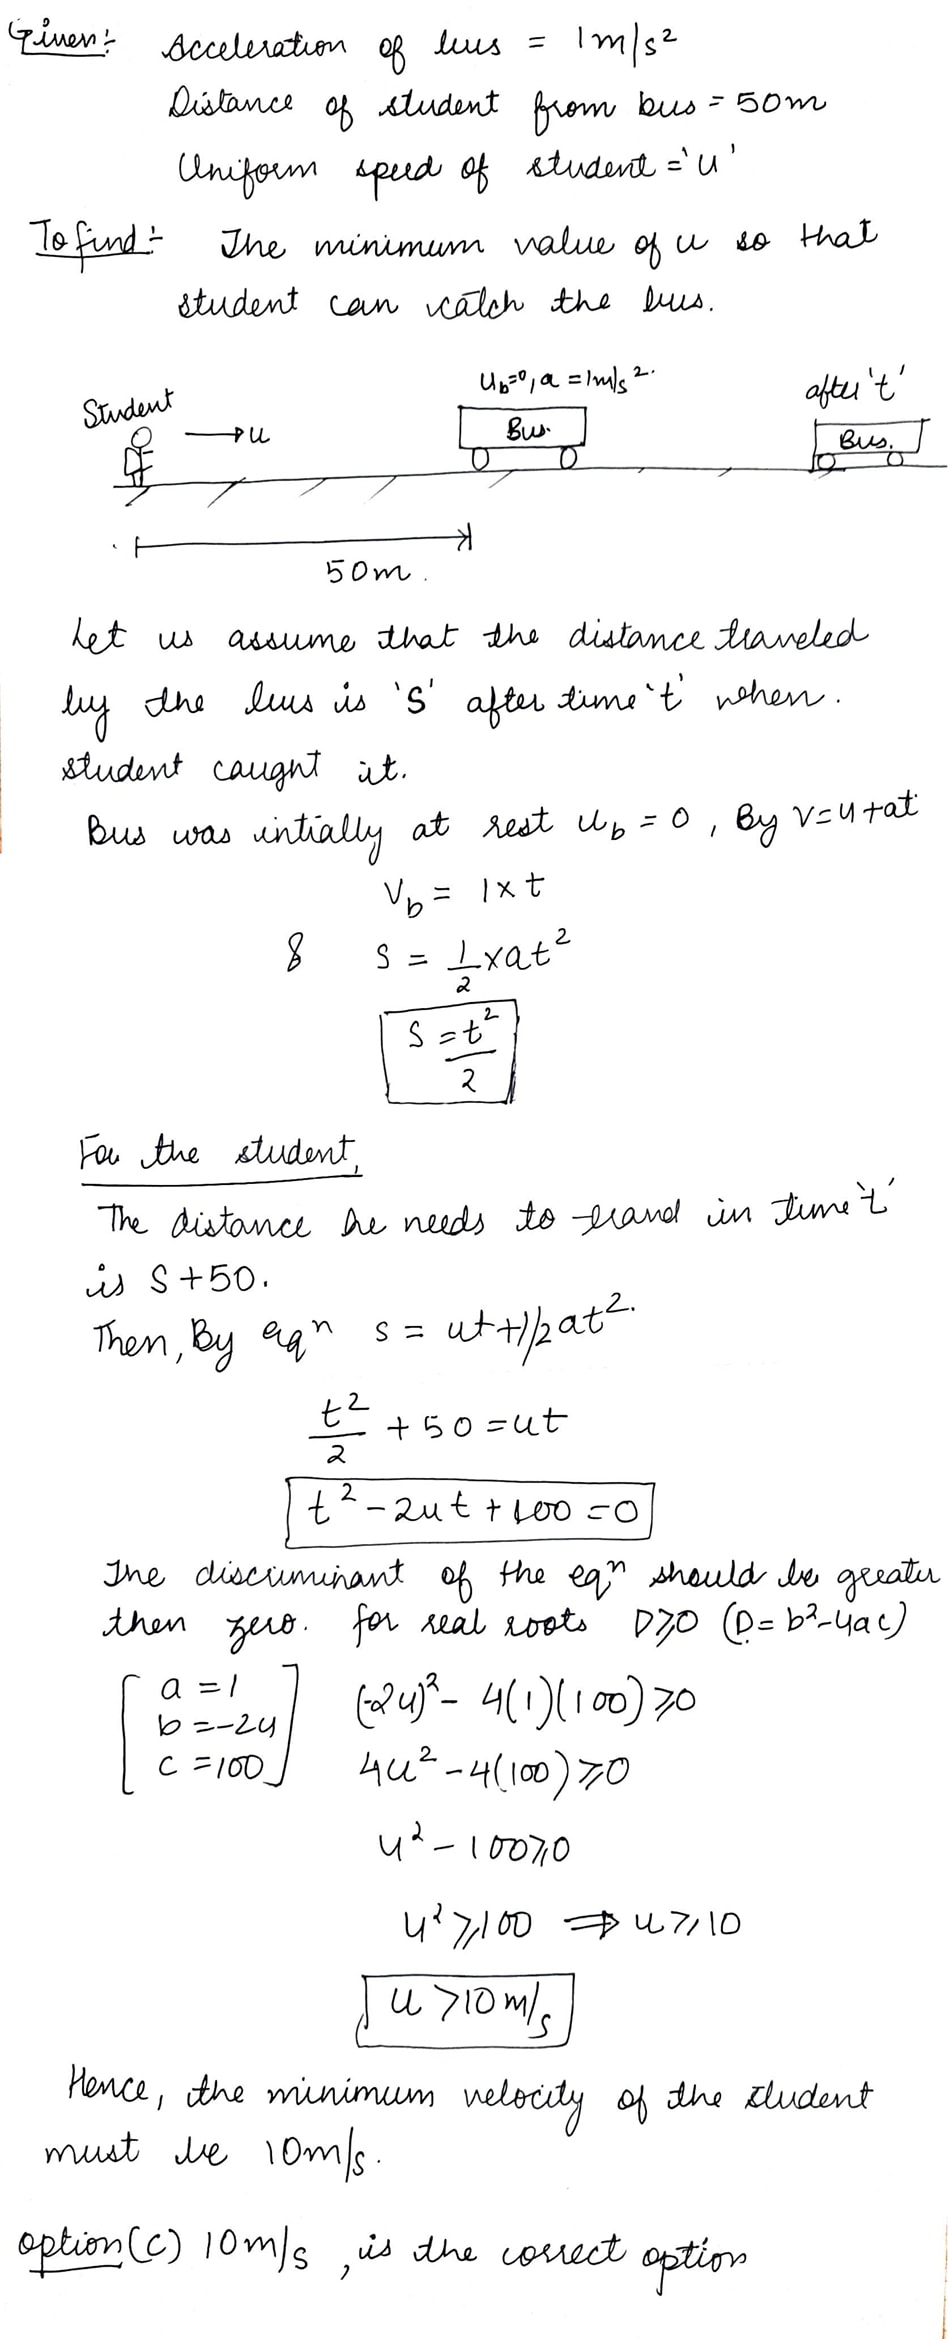 Given:- Acceleration of bus = 1m/s²
Distance of student from bus = 50m
Uniform speed of student = 'u'
To find:- The minimum value of u so that
student can catch the bus.
Student
→u
u_b=0, a = 1m/s².
Bus.
after 't'
Bus.
50m.
Let us assume that the distance traveled
by the bus is 'S' after time 't' when.
student caught it.
Bus was intially at rest u_b = 0, By v=u+at
V_b = 1×t
& S = 1/2 × at²
S = t²/2
For the student,
The distance he needs to in time 't'
is S+50.
Then, By eqⁿ s = ut+1/2at².
t²/2 + 50 = ut
t² - 2ut + 100 = 0
The discriminant of the eqⁿ should be greater
then zero. for real roots D≥0 (D = b²-4ac)
[a = 1
b = -2u
c = 100]
(-2u)² - 4(1)(100) ≥0
4u² - 4(100) ≥0
u² - 100≥0
u² ≥100 ⇒ u≥10
u >10 m/s
Hence, the minimum velocity of the student
must be 10m/s.
option(c) 10m/s, is the correct option